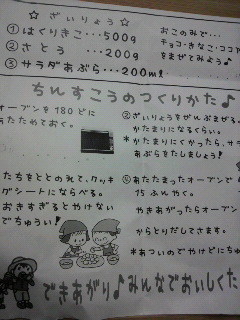 ☆ ざいりょう ☆
① はくりきこ・・・500g
② さとう ・・・200g
③ サラダあぶら・・・200ml
おこのみで・・・
チョコ・きなこ・ココア
をまぜてみよう♪
ちんすこうのつくりかた♪
オーブンを180どに
あたためておく。
②ざいりょうをぜんぶまぜる
かたまりになるくらい。
*かたまりにくかったら、サラ
あぶらをたしましょう!
たちをととのえて、クッキ
グシートにならべる。
おきすぎるとやけない
でちゅうい!
④あたためたオーブンで
15ふんやく。
やきあがったらオーブン
からとりだしてさます。
*あついのでやけどにちゅ
できあがり♪みんなでおいしくた